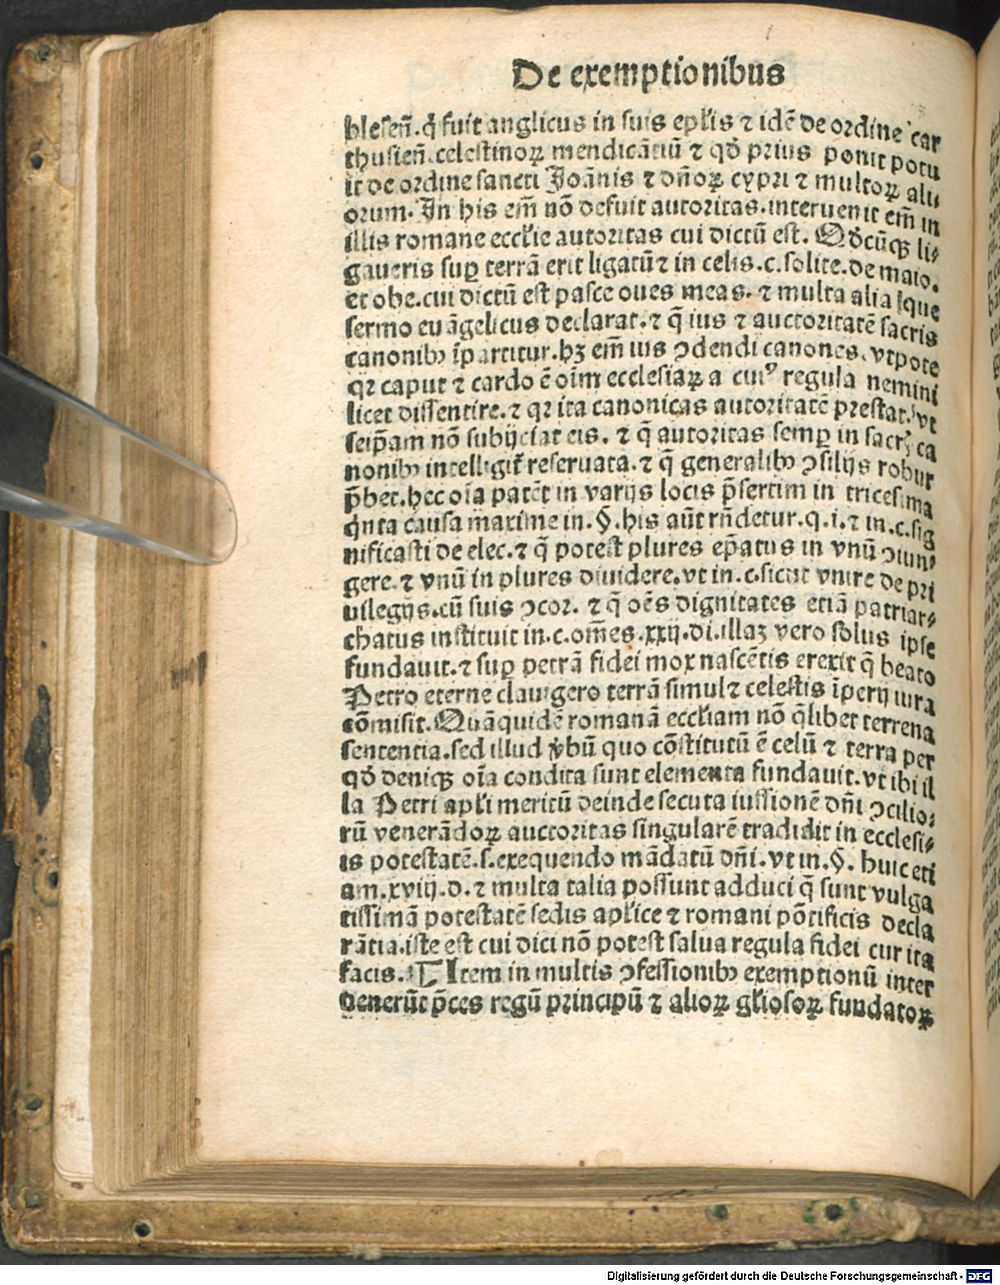 De exemptionibus
blesen̄. q̇ fuit anglicus in suis epl̄is ⁊ idē de ordine car
thusien̄. celestinoꝝ mendicātiū ⁊ qđ prius ponit potu
it de ordine sancti Joānis ⁊ dn̄oꝝ cypri ⁊ multoꝝ ali⸗
orum. In his em̄ nō defuit autoritas. interuenit em̄ in
illis romane eccl̄ie autoritas cui dictū est. Qđcūqꝫ li⸗
gaueris suꝑ terrā erit ligatū ⁊ in celis. c. solite. de maio.
et obe. cui dictū est pasce oues meas. ⁊ multa alia que
sermo euāgelicus declarat. ⁊ q̄ ius ⁊ auctoritatē sacris
canonibꝰ īpartitur. hꝫ em̄ ius ↄdendi canones. vtpote
qꝛ caput ⁊ cardo ē oīm ecclesiaꝝ a cuiꝰ regula nemini
licet dissentire. ⁊ qꝛ ita canonicas autoritatē prestat. vt
seip̄am nō subijciat eis. ⁊ q̄ autoritas semꝑ in sacrꝭ ca
nonibꝰ intelligit̄ reseruata. ⁊ q̄ generalibꝰ ↄsilijs robur
p̄bet. hec oīa patēt in varijs locis p̄sertim in tricesima
q̇nta causa maxime in. §. his aūt rn̄detur. q. i. ⁊ in. c. sig
nificasti de elec. ⁊ q̄ potest plures ep̄atus in vnū ↄiun⸗
gere. ⁊ vnū in plures diuidere. vt in. c. sicut vnire de pri
uilegijs. cū suis ↄcor. ⁊ q̄ oēs dignitates etiā patriar⸗
chatus instituit in. c. om̄es. xxij. di. illaꝫ vero solus ipse
fundauit. ⁊ suꝑ petrā fidei mox nascētis erexit q̄ beato
Petro eterne clauigero terrā simul ⁊ celestis īperij iura
cōmisit. Quāquidē romanā eccl̄iam nō q̄libet terrena
sententia. sed illud v̄bū quo cōstitutū ē celū ⁊ terra per
qđ deniqꝫ oīa condita sunt elementa fundauit. vt ibi il
la Petri apl̄i meritū deinde secuta iussionē dn̄i ↄcilio⸗
rū venerādoꝝ auctoritas singularē tradidit in ecclesi⸗
is potestatē. s. exequendo mādatū dn̄i. vt in. §. huic eti
am. xviij. d. ⁊ multa talia possunt adduci q̄ sunt vulga
tissimā potestatē sedis apl̄ice ⁊ romani pōtificis decla
rātia. iste est cui dici nō potest salua regula fidei cur ita
facis. ¶ Item in multis ↄfessionibꝰ exemptionū inter
uenerūt p̄ces regū principū ⁊ alioꝝ gl̄iosoꝝ fundatoꝝ
Digitalisierung gefördert durch die Deutsche Forschungsgemeinschaft - DFG